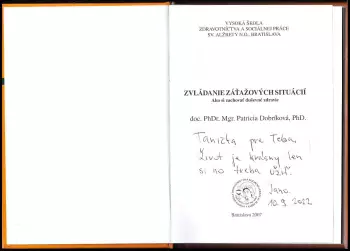 VYSOKÁ ŠKOLA
ZDRAVOTNÍCTVA A SOCIÁLNEJ PRÁCE
SV. ALŽBETY N.O., BRATISLAVA
ZVLÁDANIE ZÁŤAŽOVÝCH SITUÁCIÍ
Ako si zachovať duševné zdravie
doc. PhDr. Mgr. Patricia Dobríková, PhD.
Tanička pre Teba.
Život je krásny len
si ho treba užiť.
Jana
10.9.2022
Bratislava 2007